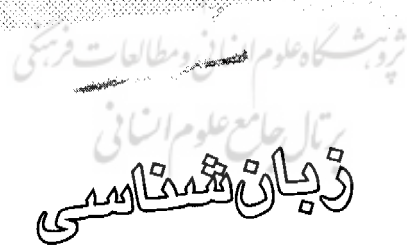 پژوهشگاه علوم انسانی و مطالعات فرهنگی
پرتال جامع علوم انسانی
زبان‌شناسی